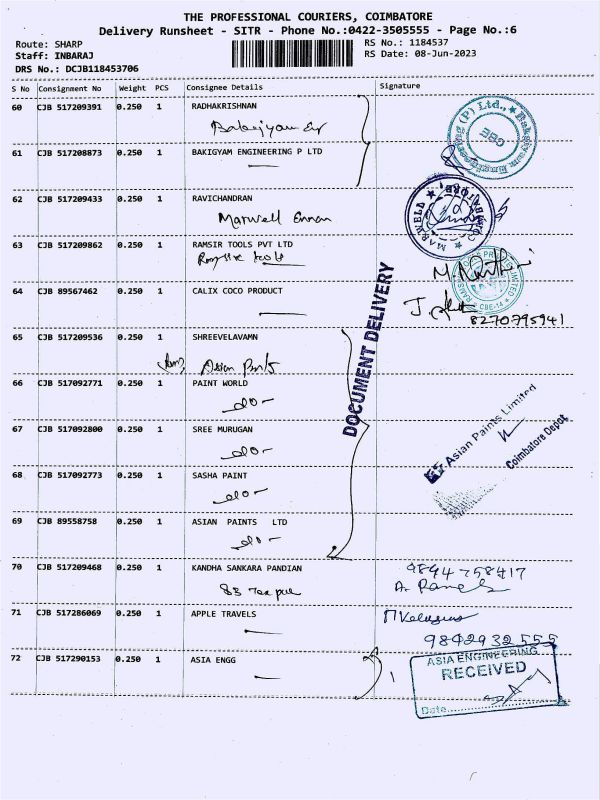 THE PROFESSIONAL COURIERS, COIMBATORE
Delivery Runsheet - SITR - Phone No.:0422-3505555 - Page No.:6
Route: SHARP
RS No.: 1184537
Staff: INBARAJ
RS Date: 08-Jun-2023
DRS No.: DCJB118453706
S No Consignment No Weight PCS Consignee Details Signature
60 CJB 517209391 0.250 1 RADHAKRISHNAN
Bakiyam Er
61 CJB 517208873 0.250 1 BAKIGYAM ENGINEERING P LTD
Bakgiyam Engineering (P) Ltd.,
CBE
62 CJB 517209433 0.250 1 RAVICHANDRAN
Marwell
MARWELD
63 CJB 517209862 0.250 1 RAMSIR TOOLS PVT LTD
Ramsir tools
64 CJB 89567462 0.250 1 CALIX COCO PRODUCT
CBE-14
8270795941
DOCUMENT DELIVERY
65 CJB 517209536 0.250 1 SHREEVELAVAMN
Asian Paints
66 CJB 517092771 0.250 1 PAINT WORLD
-do-
67 CJB 517092800 0.250 1 SREE MURUGAN
-do-
Asian Paints Limited
Coimbatore Depot
68 CJB 517092773 0.250 1 SASHA PAINT
-do-
69 CJB 89558758 0.250 1 ASIAN PAINTS LTD
-do-
70 CJB 517209468 0.250 1 KANDHA SANKARA PANDIAN
9894758417
71 CJB 517286069 0.250 1 APPLE TRAVELS
9842932555
72 CJB 517290153 0.250 1 ASIA ENGG
ASIA ENGINEERING
RECEIVED
Date